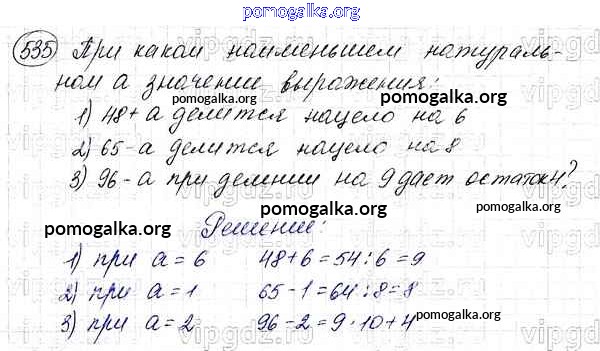 pomogalka.org
535 При каком наименьшем натураль-
ном а значении выражения:
pomogalka.org pomogalka.org
1) 48+а делится нацело на 6
2) 65-а делится нацело на 8
pomogalka.org
3) 96-а при делении на 9 дает остаток 4?
pomogalka.org pomogalka.org
Решение:
1) при а = 6 48+6=54:6=9
pomogalka.org
2) при а = 1 65-1=64:8=8
3) при а = 2 96-2=9·10+4
pomogalka.org pomogalka.org